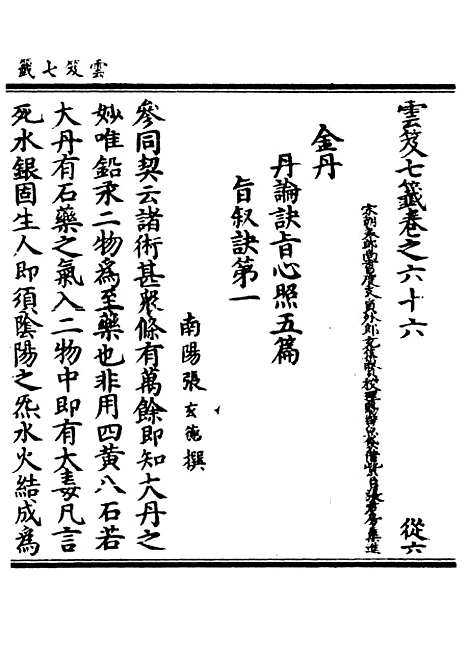 雲笈七籤
雲笈七籤卷之六十六
從六
宋朝奉郎尚書度支員外郎充集賢校理
張君房集進
金丹
丹論訣旨心照五篇
旨叙訣第一
南陽張玄德撰
參同契云諸術甚衆條有萬餘即知大丹之
妙唯鉛汞二物為至藥也非用四黃八石若
大丹有石藥之氣入二物中即有大毒凡言
死水銀固生人即須陰陽之炁水火結成為